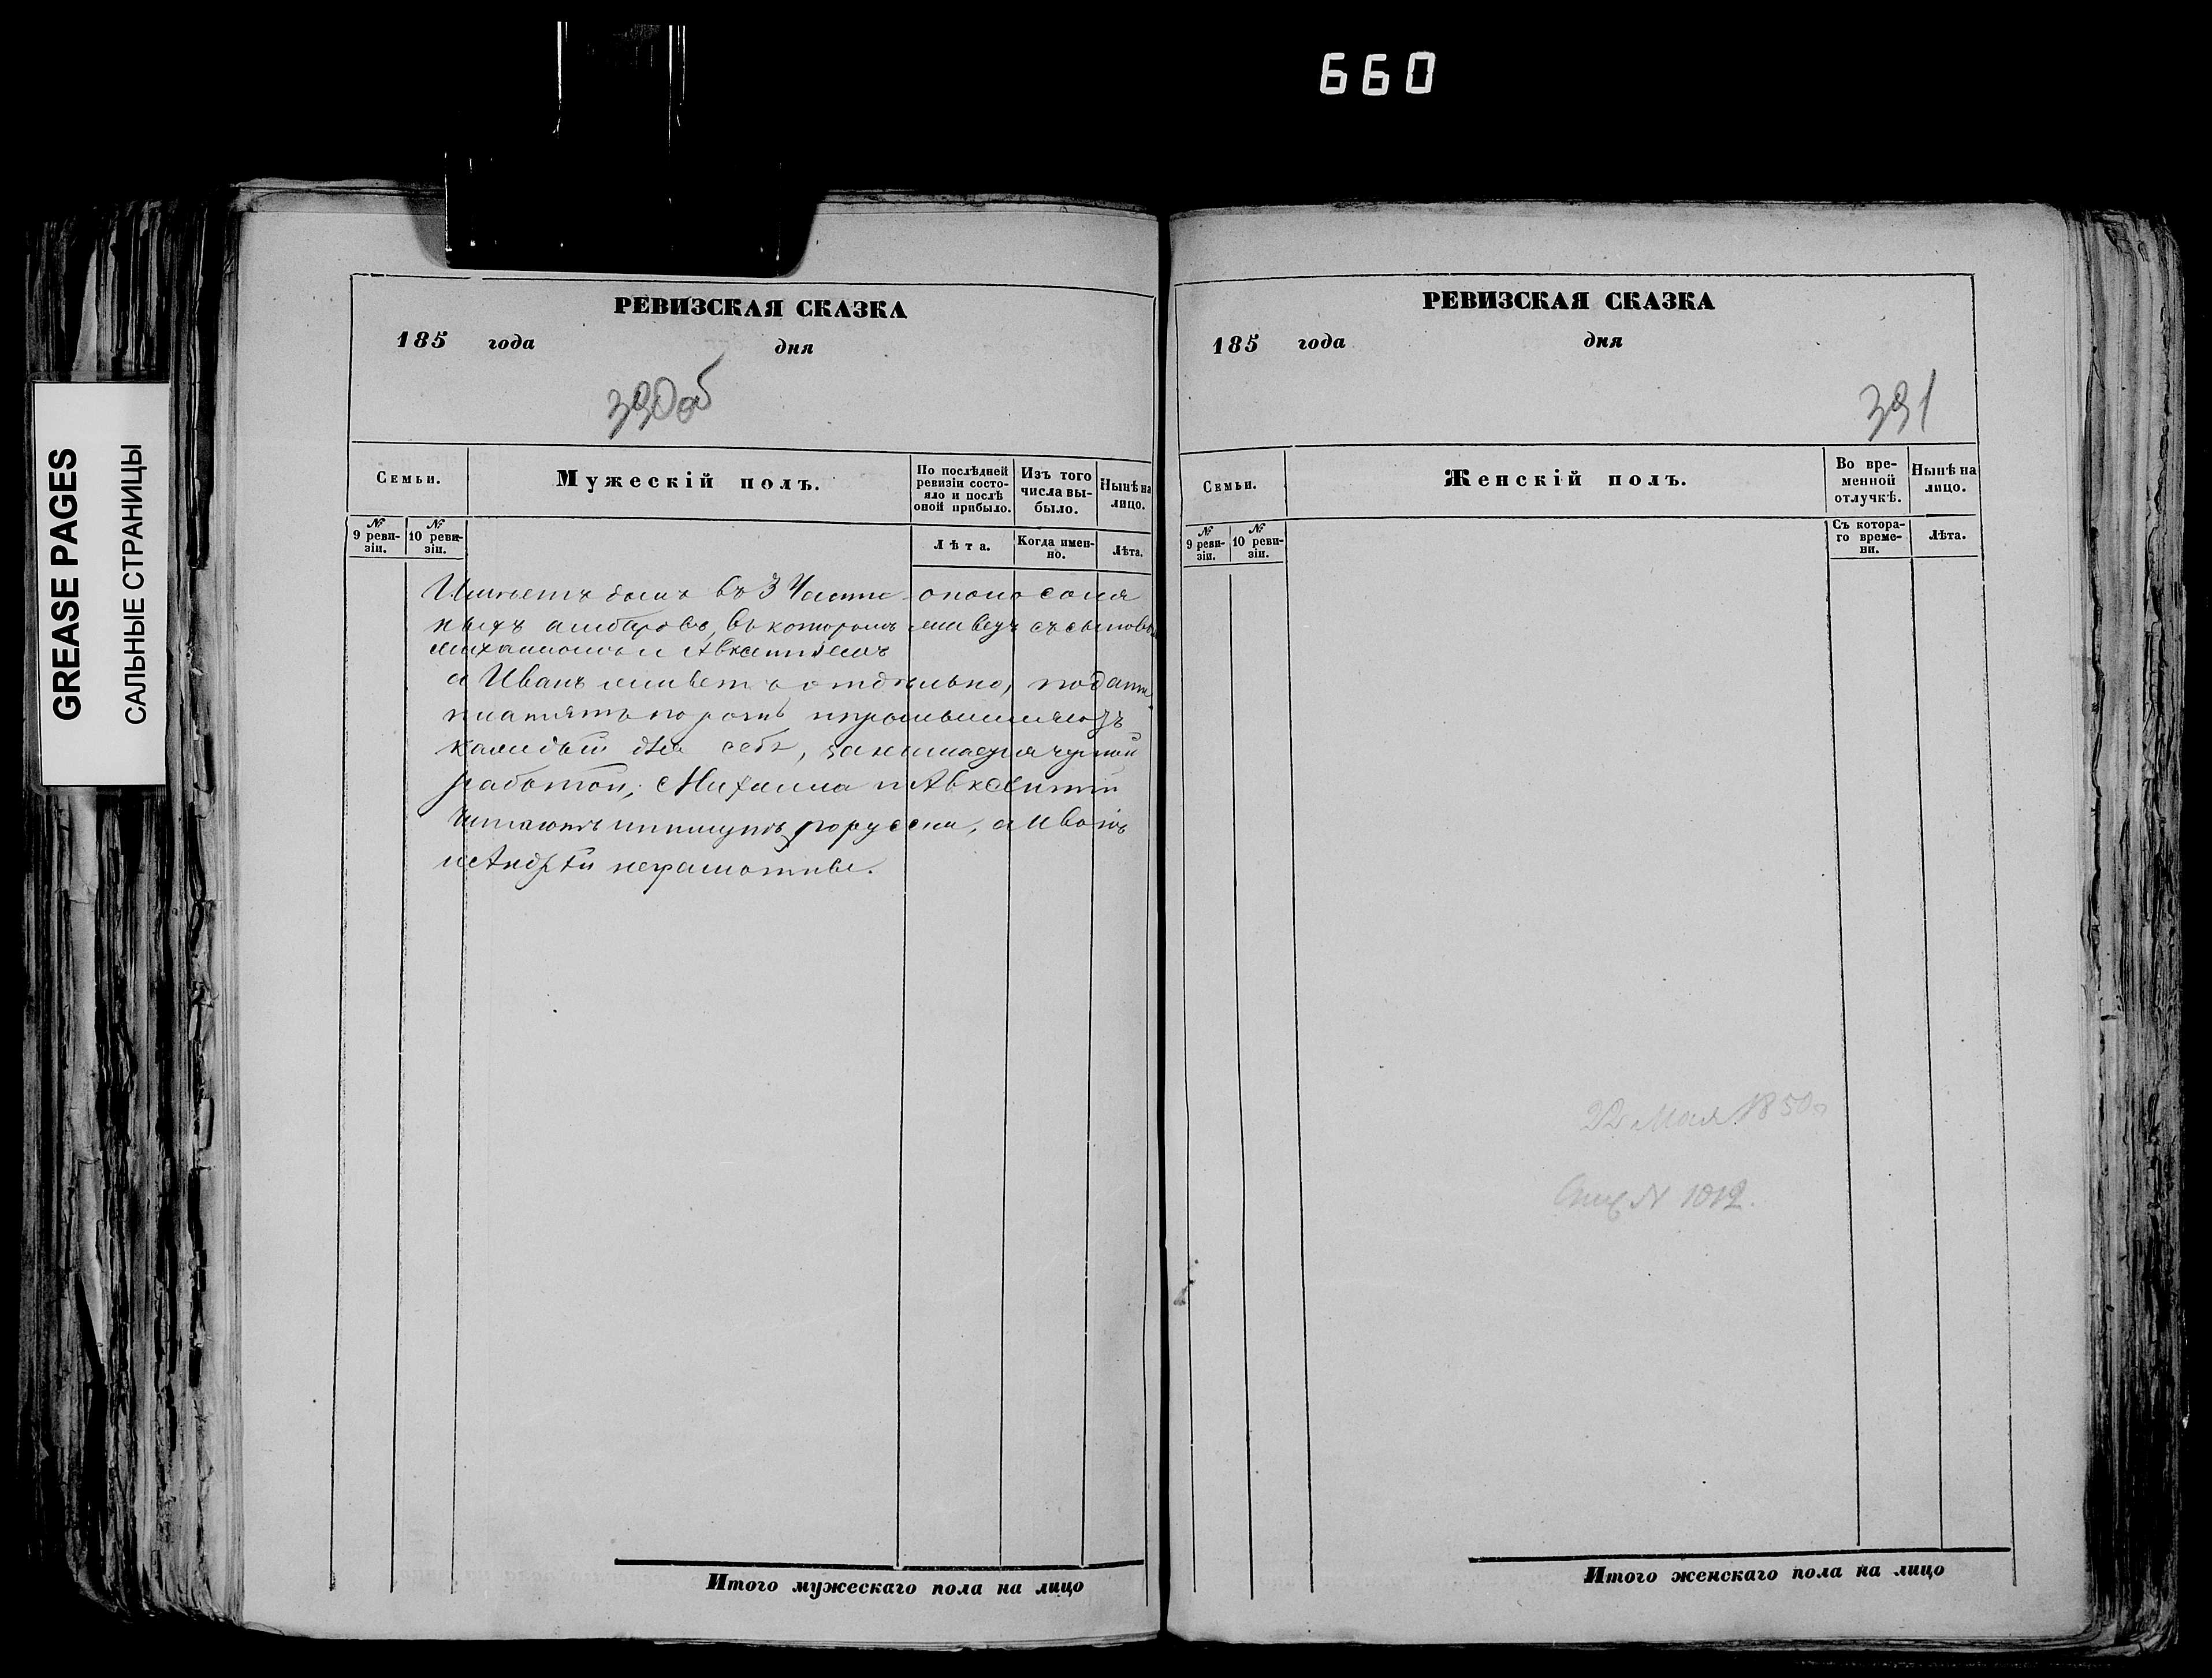 660
GREASE PAGES
САЛЬНЫЕ СТРАНИЦЫ
РЕВИЗСКАЯ СКАЗКА
185 года дня
390об
Семьи.
Мужескій полъ.
По послѣдней ревизіи состо-
яло и послѣ оной прибыло.
Изъ того числа вы-
было.
Нынѣ на лицо.
№ 9 реви-
зіи.
№ 10 реви-
зіи.
Лѣта.
Когда имен-
но.
Лѣта.
Имѣетъ домъ въ 3 Части около соля
ныхъ амбаровъ, въ которомъ живетъ съ сыновья
Михаиломъ и Авксентіемъ
а Иванъ живетъ отдѣльно, подати
платятъ по рознь
каждый для себя, занимаются черной
работой; Михаила и Авксентій
читаютъ и пишутъ по русски, а Иванъ
и Андрей неграмотные.
РЕВИЗСКАЯ СКАЗКА
185 года дня
391
Семьи.
Женскій полъ.
Во вре-
менной
отлучкѣ.
Нынѣ на
лицо.
№ 9 реви-
зіи.
№ 10 реви-
зіи.
Съ котора-
го време-
ни.
Лѣта.
22 Мая 1850
№ 1012.
Итого мужескаго пола на лицо
Итого женскаго пола на лицо